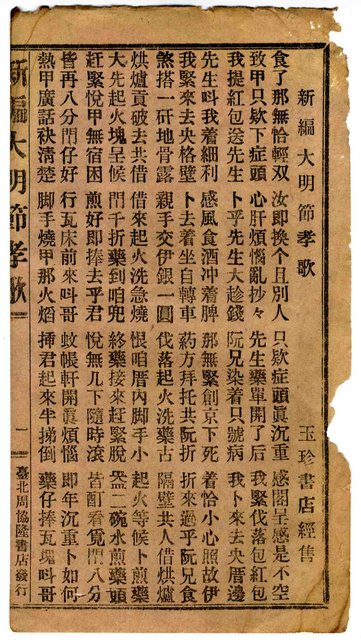 新編大明節孝歌
玉珍書店經售
食了那無恰輕双 汝即換个且別人 只欵症頭眞沉重 感閣呈感是不空
致甲只欵下症頭 心肝煩惱亂抄々 先生藥單開了后 我緊伐落包紅包
我提紅包送先生 卜乎先生大趁錢 阮兄染着只號病 我卜來去央厝邊
先生叫我着細利 感風食酒冲着脾 那無緊創京下死 着恰小心照故伊
我緊來去央格壁 卜去着坐自轉車 藥方拜托共阮折 折來過乎阮兄食
煞搭一矸地骨露 親手交伊銀一圓 伐落起火洗藥古 隔壁共人借烘爐
烘爐貢破去共借 借來起火洗急燒 恨咱厝内脚手小 起火等候卜煎藥
大先起火塊呈候 門千折藥到咱兜 終藥接來赶緊脫 盌二碗水煎藥頭
紅緊悅甲無宿困 煎好即捧去乎君 悅無几下隨時滾 皆酊看覔門八分
皆再八分門仔好 行瓦床前來叫哥 蚊帳軒開眞煩惱 即年沉重卜如何
熱甲廣話袂清楚 脚手燒甲那火熖 捀君起來半倒 藥仔捧瓦塊叫哥
新編大明節孝歌 一 臺北周協隆書店發行